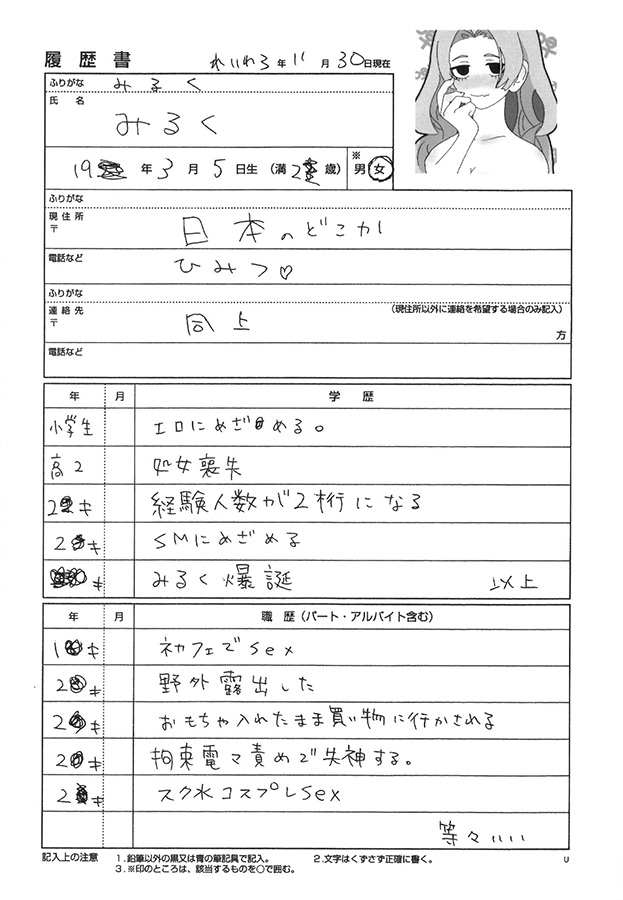 履歴書
れいわ3年11月30日現在
ふりがな みるく
氏名
みるく
19 年3月5日生(満2 歳)
※
男・女
ふりがな
現住所
〒
日本のどこか
電話など
ひみつ♡
ふりがな
連絡先
〒
(現住所以外に連絡を希望する場合のみ記入)
同上
方
電話など
年 月 学歴
2 才 経験人数が2桁になる
2 才 SMにめざめる
才 みるく爆誕 以上
年 月 職歴(パート・アルバイト含む)
2 才 野外露出した
2 才 おもちゃ入れたまま買い物に行かされる
2 才 拘束電マ責めで失神する。
2 才 スク水コスプレSex
等々…
記入上の注意 1.鉛筆以外の黒又は青の筆記具で記入。 2.文字はくずさず正確に書く。
3.※印のところは、該当するものを○で囲む。